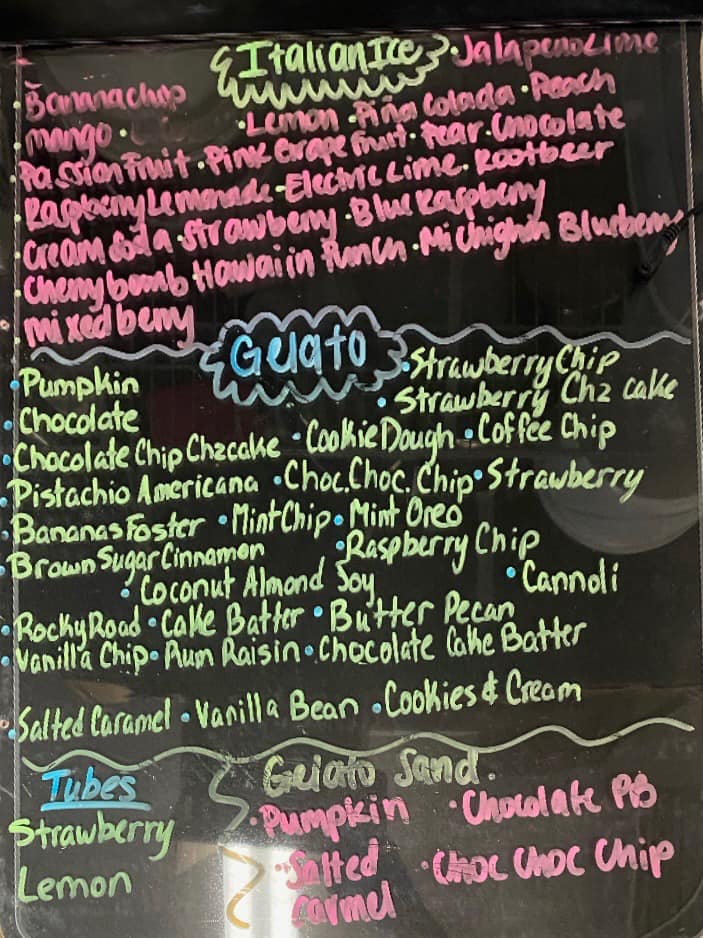 Italian Ice
• Jalapeno Lime
• Banana chip
• mango • • Lemon • Piña Colada • Peach
• Passion Fruit • Pink Grape fruit • Pear • Chocolate
• Raspberry Lemonade • Electric Lime • Rootbeer
• Cream Soda • Strawberry • Blue Raspberry
• Cherry bomb Hawaiin Punch • Michigan Blueberry
• mixed berry
Gelato
• Strawberry Chip
• Pumpkin • Strawberry Chz cake
• Chocolate
• Chocolate Chip Chzcake • Cookie Dough • Coffee Chip
• Pistachio Americana • Choc. Choc. Chip • Strawberry
• Bananas Foster • Mint Chip • Mint Oreo
• Brown Sugar Cinnamon • Raspberry Chip
• Coconut Almond Soy • Cannoli
• Rocky Road • Cake Batter • Butter Pecan
• Vanilla Chip • Rum Raisin • Chocolate Cake Batter
• Salted Caramel • Vanilla Bean • Cookies & Cream
Tubes
Strawberry
Lemon
Gelato Sand.
• Pumpkin • Chocolate PB
• Salted • Choc Choc Chip
carmel